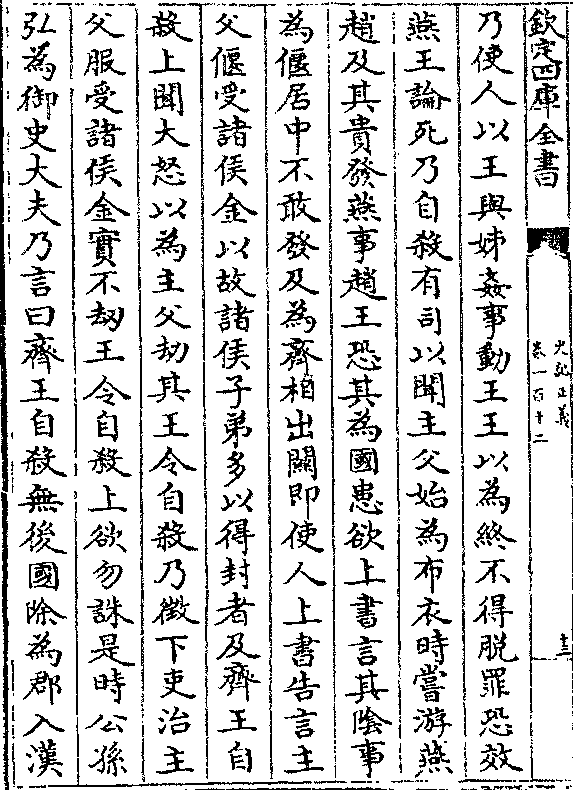 欽定四庫全書
史記正義
卷一百十二
十三
乃使人以王與姊姦事動王王以為終不得脫罪恐效
燕王論死乃自殺有司以聞主父始為布衣時嘗游燕
趙及其貴發燕事趙王恐其為國患欲上書言其陰事
為偃居中不敢發及為齊相出關即使人上書告言主
父偃受諸侯金以故諸侯子弟多以得封者及齊王自
殺上聞大怒以為主父劫其王令自殺乃徵下吏治主
父服受諸侯金實不劫王令自殺上欲勿誅是時公孫
弘為御史大夫乃言曰齊王自殺無後國除為郡入漢